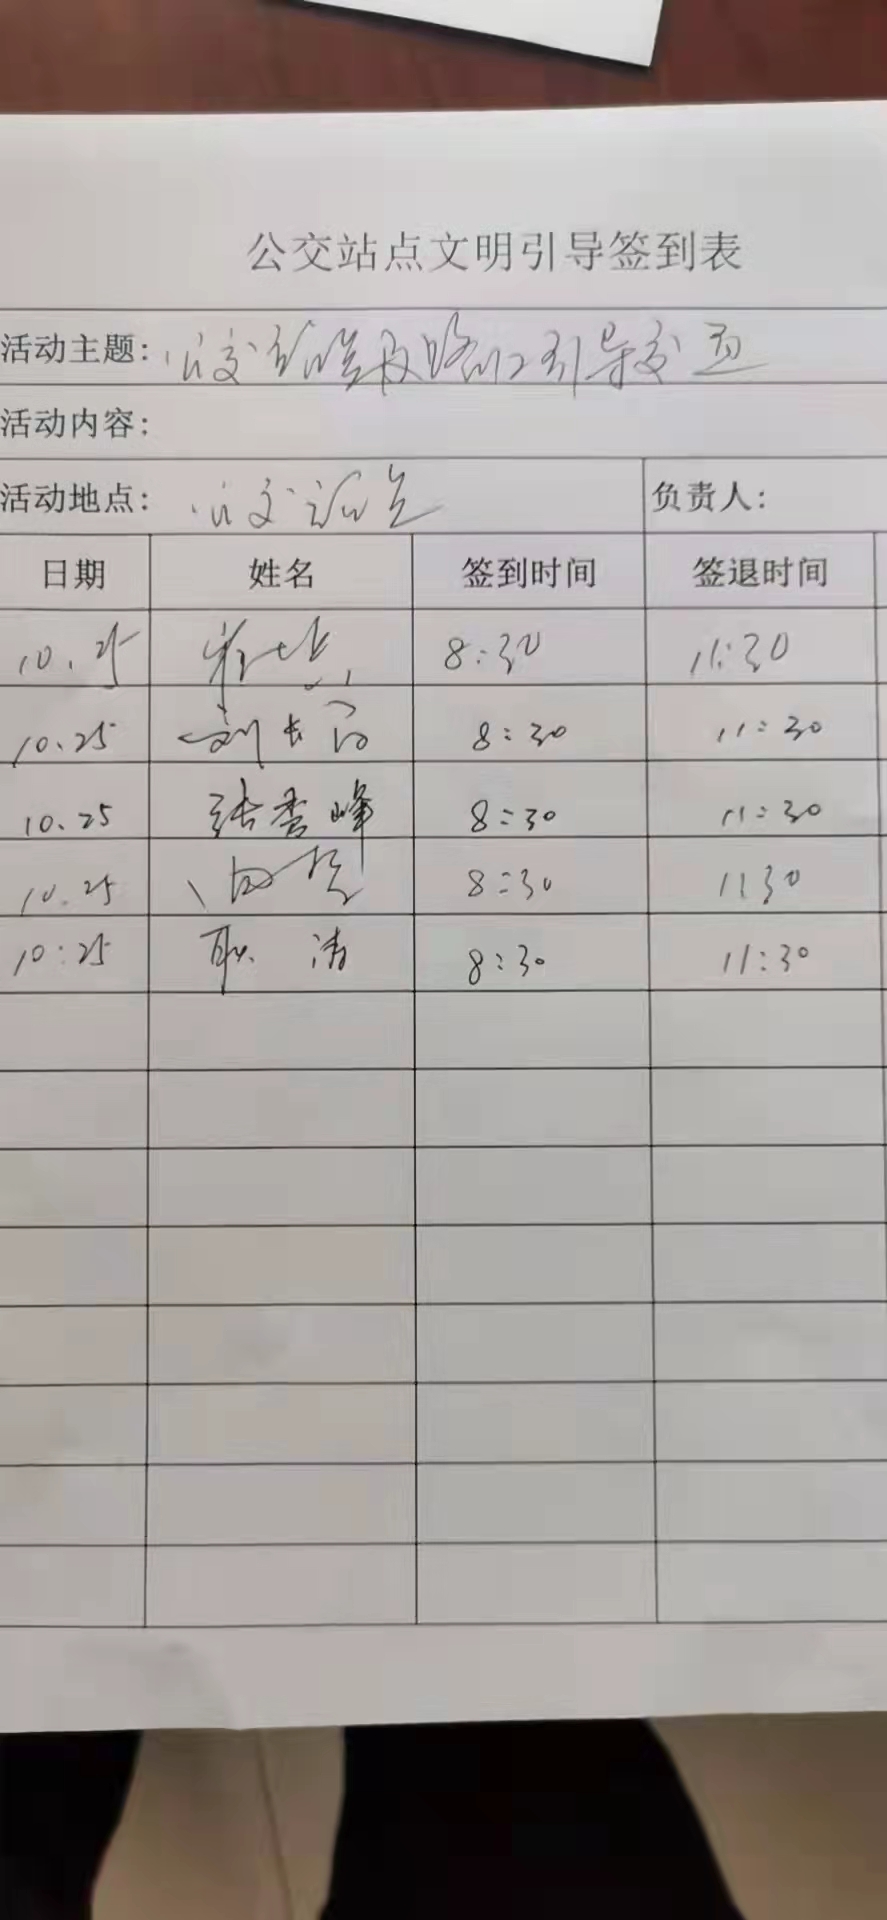 公交站点文明引导签到表
活动主题: 公交站点及路口引导交通
活动内容:
活动地点: 公交站点 负责人:
日期 姓名 签到时间 签退时间
10.25 8:30 11:30
10.25 刘长 8:30 11:30
10.25 张秀峰 8:30 11:30
10.25 8:30 11:30
10:25 耿涛 8:30 11:30